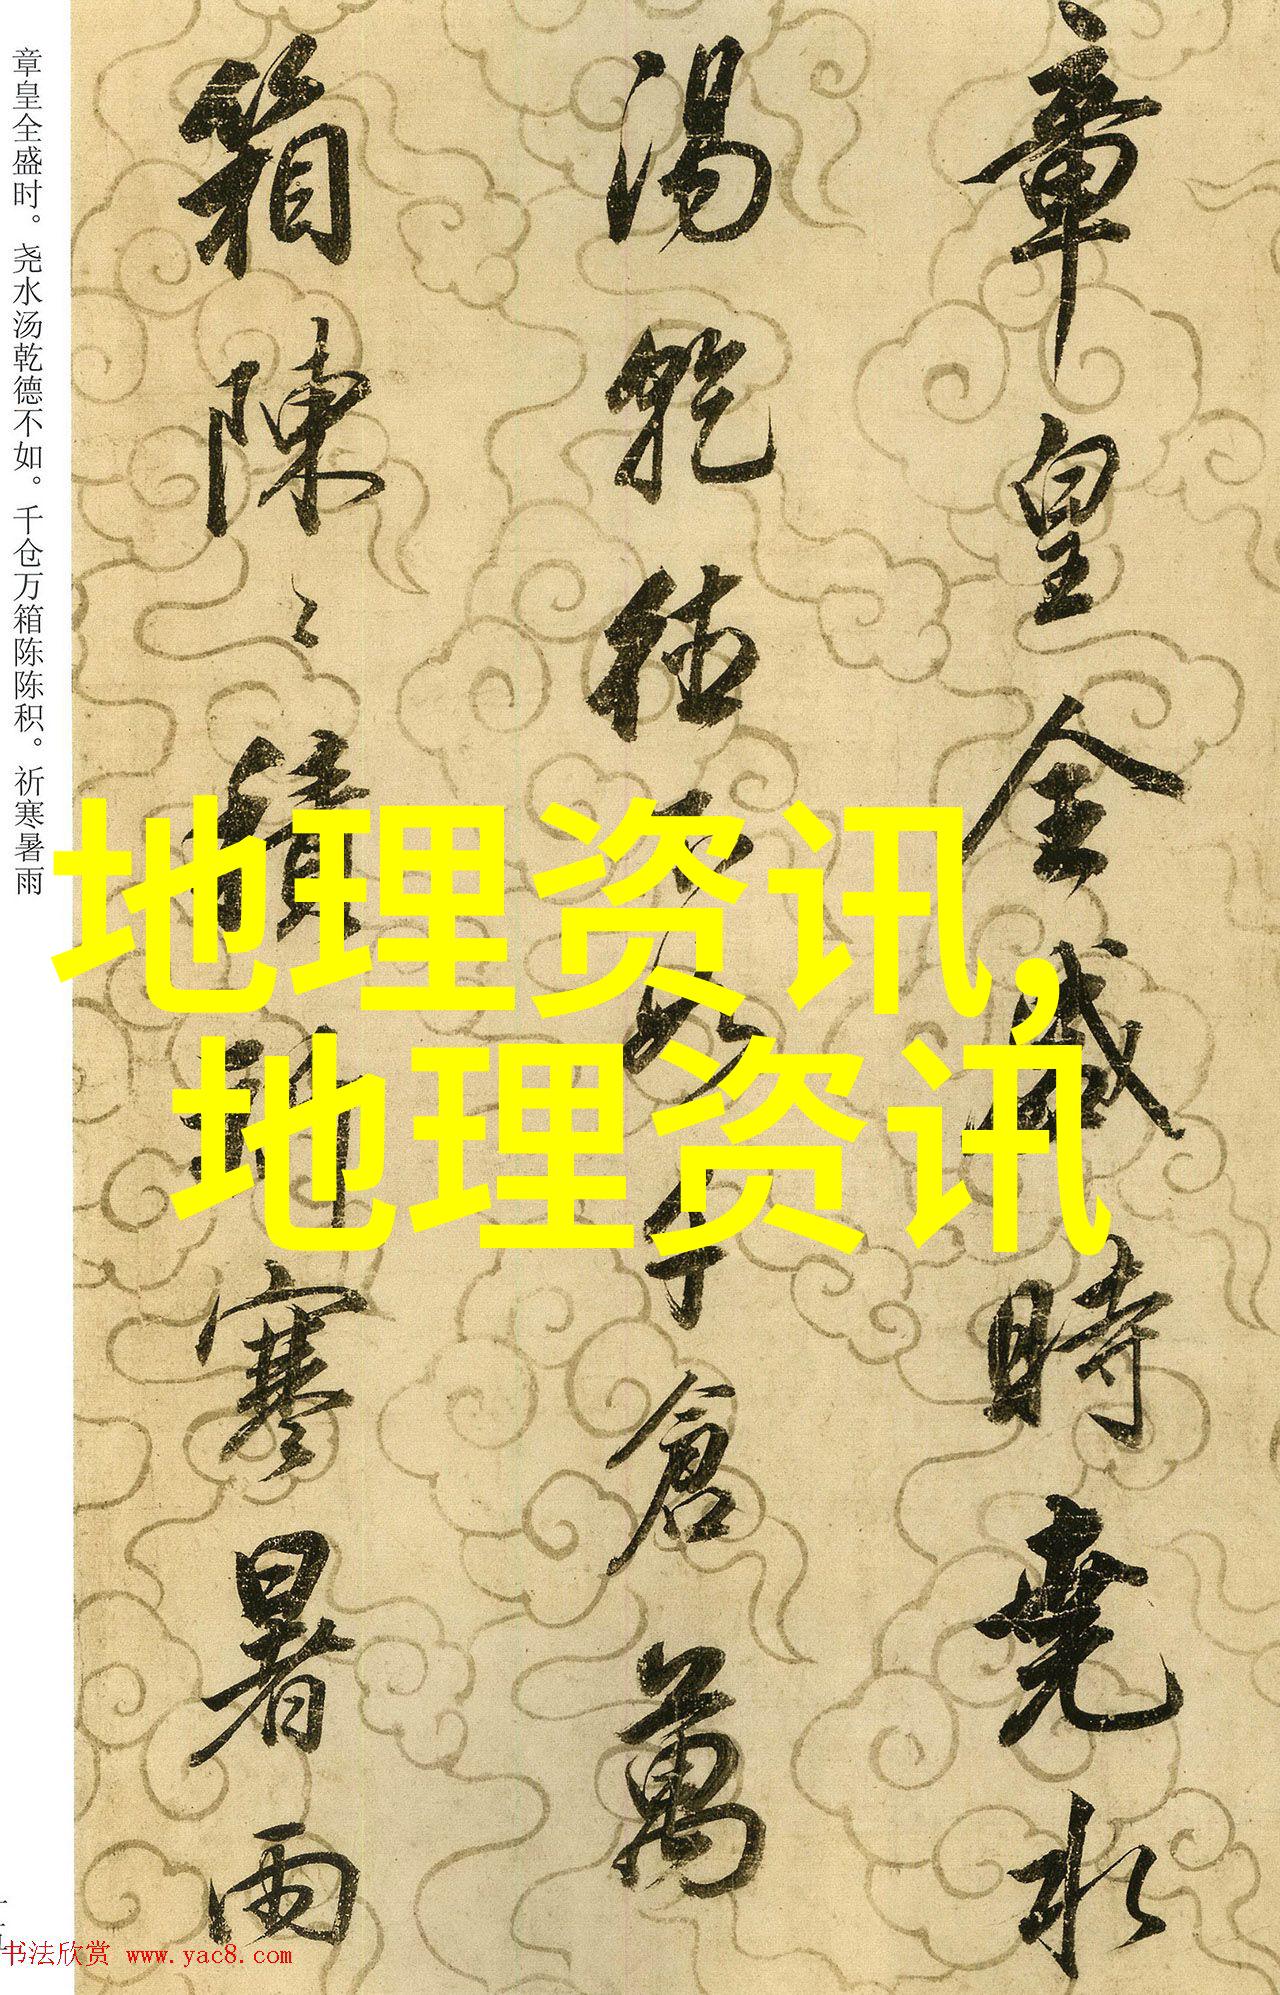 章皇全盛時堯水
湯乾德不如千倉萬
箱陳〻積祈寒暑雨
章皇全盛时。尧水汤乾德不如。千仓万箱陈陈积。祈寒暑雨
地理资讯,
地理资讯
书法欣赏 www.yac8.com